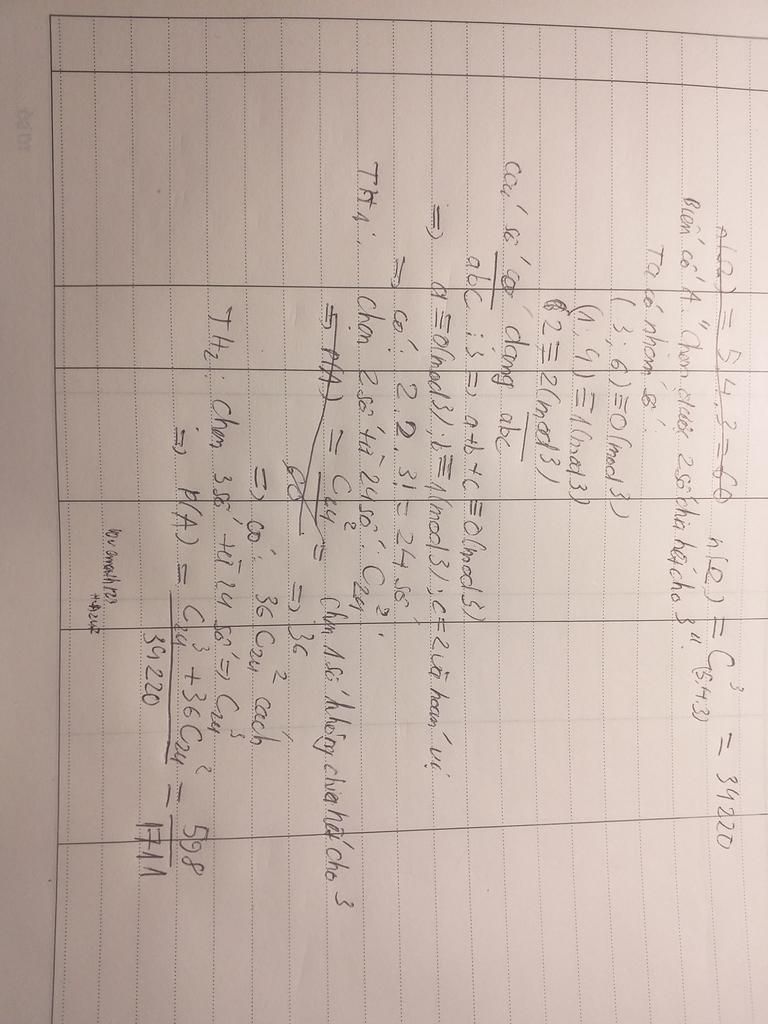 n(Ω) = 5.4.3 = 60 n(Ω) = C³(5.4.3) = 34220
Biến cố A: "Chọn được 2 số chia hết cho 3".
Ta có nhóm số:
(3; 6) ≡ 0(mod 3)
(1, 4) ≡ 1(mod 3)
2 ≡ 2(mod 3)
các số có dạng abc
abc ⋮ 3 => a+b+c ≡ 0(mod 3)
=> a ≡ 0(mod 3); b ≡ 1(mod 3); c = 2 và hoán vị
=> có: 2.2.3! = 24 số
TH1: chọn 2 số từ 24 số: C²24.
=> P(A) = C²24 / 60 = Chọn 1 số không chia hết cho 3
=> 36
=> có: 36C²24 cách
TH2: Chọn 3 số từ 24 số => C³24
=> P(A) = (C³24 + 36C²24) / 34220 = 598 / 1711